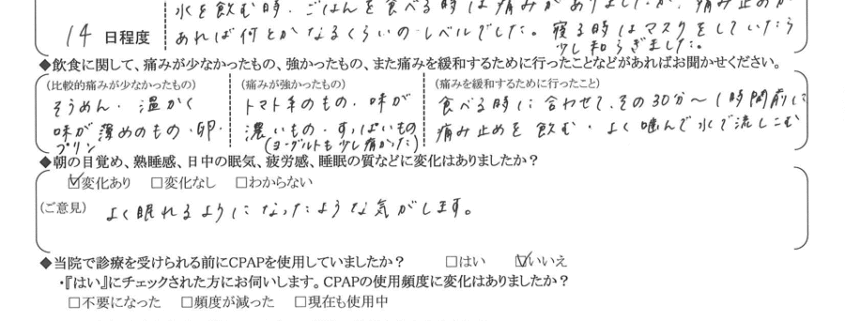 水を飲む時・ごはんを食べる時は痛みがありましたが、痛み止めが
14 日程度
あれば何とかなるくらいのレベルでした。寝る時はマスクをしていたら
少し和らぎました。
◆飲食に関して、痛みが少なかったもの、強かったもの、また痛みを緩和するために行ったことなどがあればお聞かせください。
(比較的痛みが少なかったもの) (痛みが強かったもの) (痛みを緩和するために行ったこと)
そうめん・温かく トマト系のもの・味が 食べる時に合わせて、その30分~1時間前に
味が薄めのもの・卵・ 濃いもの・すっぱいもの 痛み止めを飲む・よく噛んで水で流しこむ
プリン (ヨーグルトも少し痛かった)
◆朝の目覚め、熟睡感、日中の眠気、疲労感、睡眠の質などに変化はありましたか?
☑変化あり □変化なし □わからない
(ご意見) よく眠れるようになったような気がします。
◆当院で診療を受けられる前にCPAPを使用していましたか? □はい ☑いいえ
・『はい』にチェックされた方にお伺いします。CPAPの使用頻度に変化はありましたか?
□不要になった □頻度が減った □現在も使用中